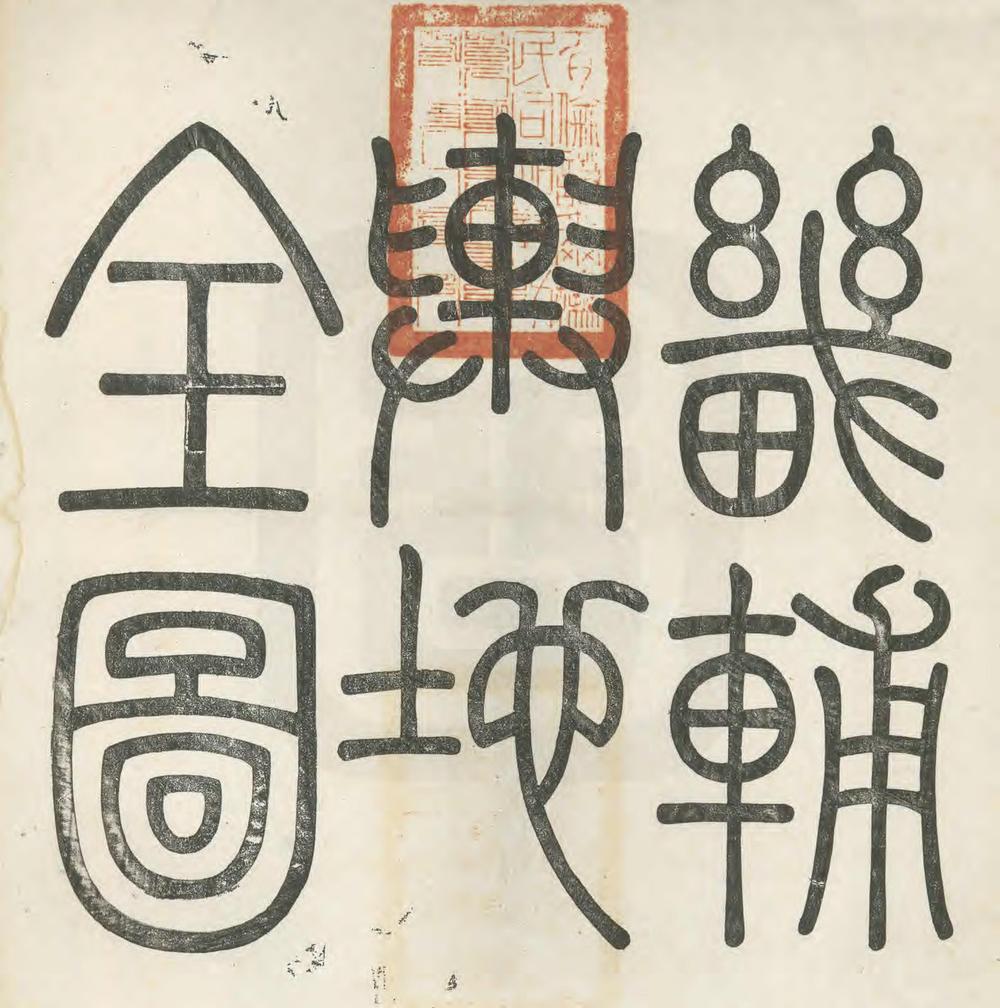 畿輔
輿地
全圖